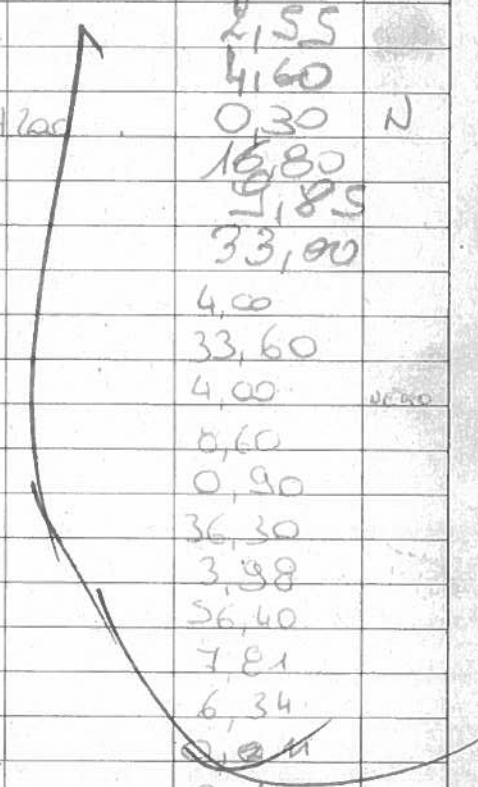 2,55
4,60
0,30 N
16,80
9,85
33,00
4,00
33,60
4,00
0,60
0,90
36,30
3,98
56,40
7,81
6,34